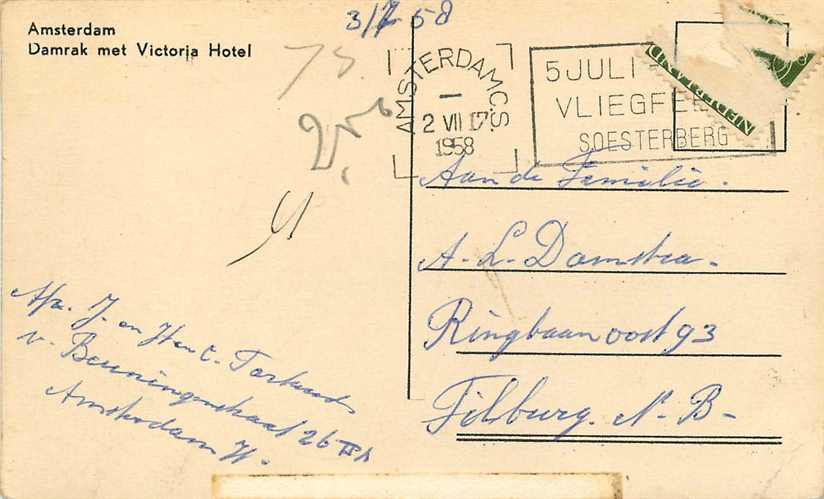 Amsterdam
Damrak met Victoria Hotel
3/7 58
AMSTERDAM C.S.
2 VII 17
1958
5 JULI
VLIEGFE
SOESTERBERG
NEDERLAND
Aan de Familie.
A. L. Damstra.
Ringbaan oost 93
Tilburg. N. B.
Afz. J. en
v. Beuningenstraat 26
Amsterdam W.